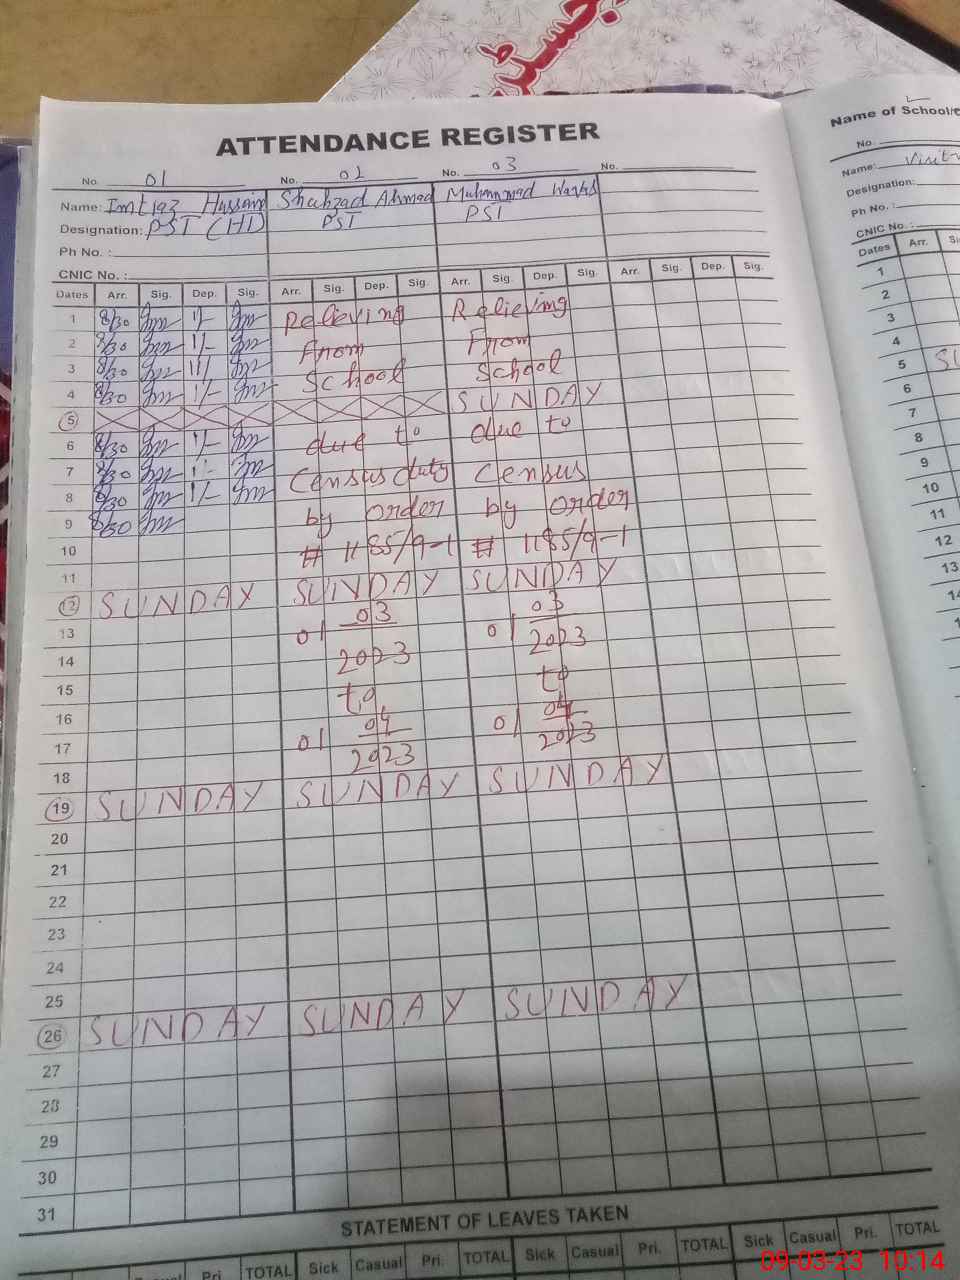 رجسٹر
ATTENDANCE REGISTER
No. 01 No. 02 No. 03 No.
Name: Imtiaz Hussain Shahzad Ahmad Muhammad Waqas
Designation: PST (HT) PST PST
Ph No. :
CNIC No. :
Dates Arr. Sig. Dep. Sig. Arr. Sig. Dep. Sig. Arr. Sig. Dep. Sig. Arr. Sig. Dep. Sig.
1 8/30 1/- Relieving Relieving
2 8/30 1/- From From
3 8/30 1/- School School
4 8/30 1/- SUNDAY
5
6 8/30 1/- due to due to
7 8/30 1/- Census duty Census
8 8/30 1/- by order by order
9 8/30
10 # 1185/9-1 # 1185/9-1
11 SUNDAY SUNDAY
12 SUNDAY
13 01 03 01 03
14 2023 2023
15 to to
16 01 04 01 04
17 2023 2023
18
19 SUNDAY SUNDAY SUNDAY
20
21
22
23
24
25
26 SUNDAY SUNDAY SUNDAY
27
28
29
30
31
STATEMENT OF LEAVES TAKEN
Casual Pri. TOTAL Sick Casual Pri. TOTAL Sick Casual Pri. TOTAL Sick Casual Pri. TOTAL
Name of School/
No.
Name:
Designation:
Ph No. :
CNIC No. :
Dates Arr. Sig.
1
2
3
4
5 SU
6
7
8
9
10
11
12
13
09-03-23 10:14